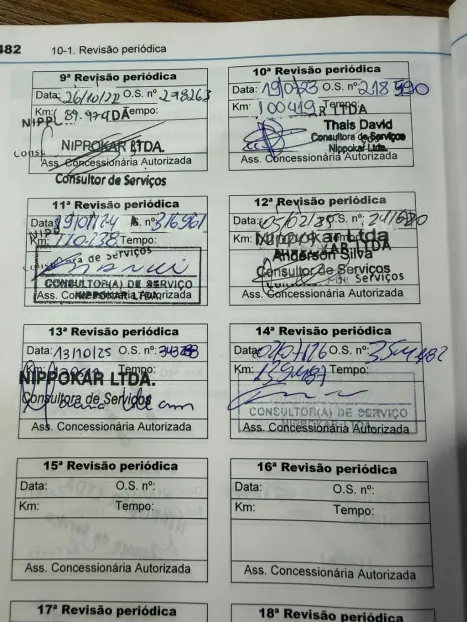 482 10-1. Revisão periódica
9ª Revisão periódica
Data: 26/10/22 O.S. nº: 298263
Km: 89.979 Tempo:
NIPPOKAR LTDA.
Ass. Concessionária Autorizada
Consultor de Serviços
10ª Revisão periódica
Data: 19/07/23 O.S. nº:
Km: 100419 Tempo:
Thais David
Consultora de Serviços
Nippokar Ltda.
Ass. Concessionária Autorizada
11ª Revisão periódica
Data: 19/01/24 O.S. nº: 316961
Km: 110238 Tempo:
CONSULTOR(A) DE SERVIÇO
NIPPOKAR LTDA.
Ass. Concessionária Autorizada
12ª Revisão periódica
Data: O.S. nº:
Km: Tempo:
Nippokar Ltda
Anderson Silva
Consultor de Serviços
Ass. Concessionária Autorizada
13ª Revisão periódica
Data: 13/10/25 O.S. nº:
Km: Tempo:
NIPPOKAR LTDA.
Consultora de Serviços
Ass. Concessionária Autorizada
14ª Revisão periódica
Data: O.S. nº: 354482
Km: 139487 Tempo:
CONSULTOR(A) DE SERVIÇO
NIPPOKAR LTDA.
Ass. Concessionária Autorizada
15ª Revisão periódica
Data: O.S. nº:
Km: Tempo:
Ass. Concessionária Autorizada
16ª Revisão periódica
Data: O.S. nº:
Km: Tempo:
Ass. Concessionária Autorizada
17ª Revisão periódica
18ª Revisão periódica